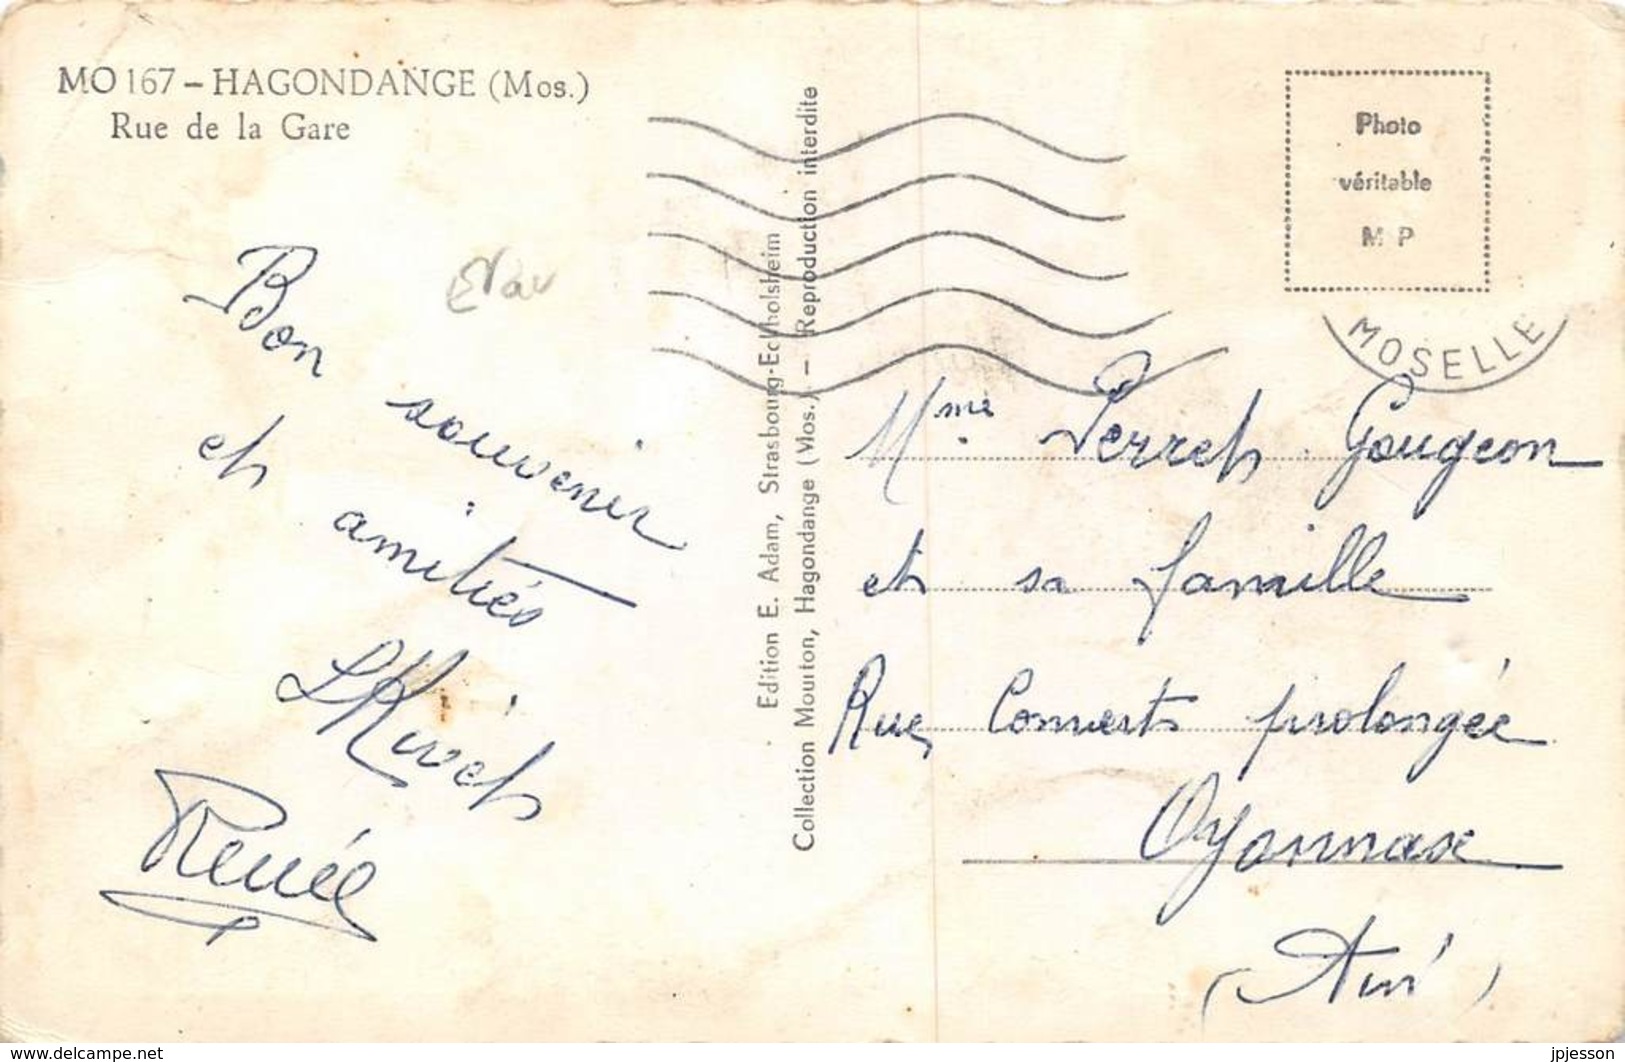 MO 167 – HAGONDANGE (Mos.)
Rue de la Gare
Bon souvenir
et amitiés
Renée
Edition E. Adam, Strasbourg-Eckbolsheim
Collection Mourton, Hagondange (Mos.) – Reproduction interdite
Photo
véritable
M P
MOSELLE
Mme Perret Gougeon
et sa famille
Rue Convert prolongée
Oyonnax
(Ain)
www.delcampe.net
jpjesson